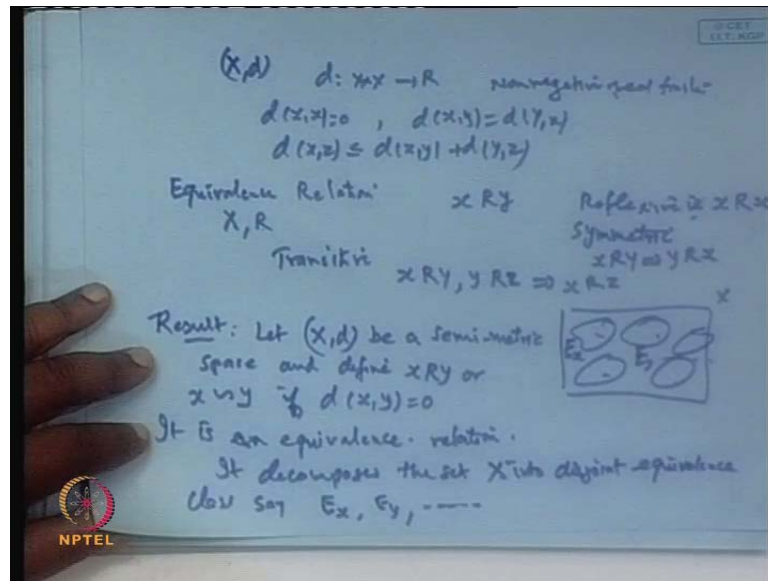 © CET
I.I.T. KGP
(X,d) d: X×X → R Nonnegative real
d(x,x)=0 , d(x,y)=d(y,x)
d(x,z) ≤ d(x,y)+d(y,z)
Equivalence Relation xRy Reflexive ie xRx
X, R Symmetric
xRy ⇔ yRx
Transitive xRy, yRz ⇒ xRz
X
Result: Let (X,d) be a semi-metric
space and define xRy or
x ∼ y if d(x,y)=0
Ex Ey
It is an equivalence relation.
It decomposes the set X into disjoint equivalence
class say Ex, Ey, -----
NPTEL